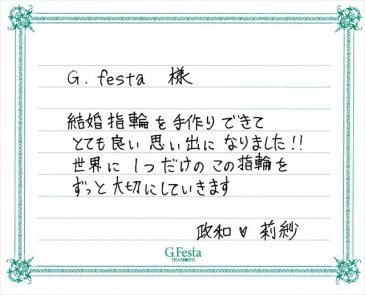 G.festa 様
結婚指輪を手作りできて
とても良い思い出になりました!!
世界に1つだけのこの指輪を
ずっと大切にしていきます
政和♥莉紗
G.Festa
DIAMOND